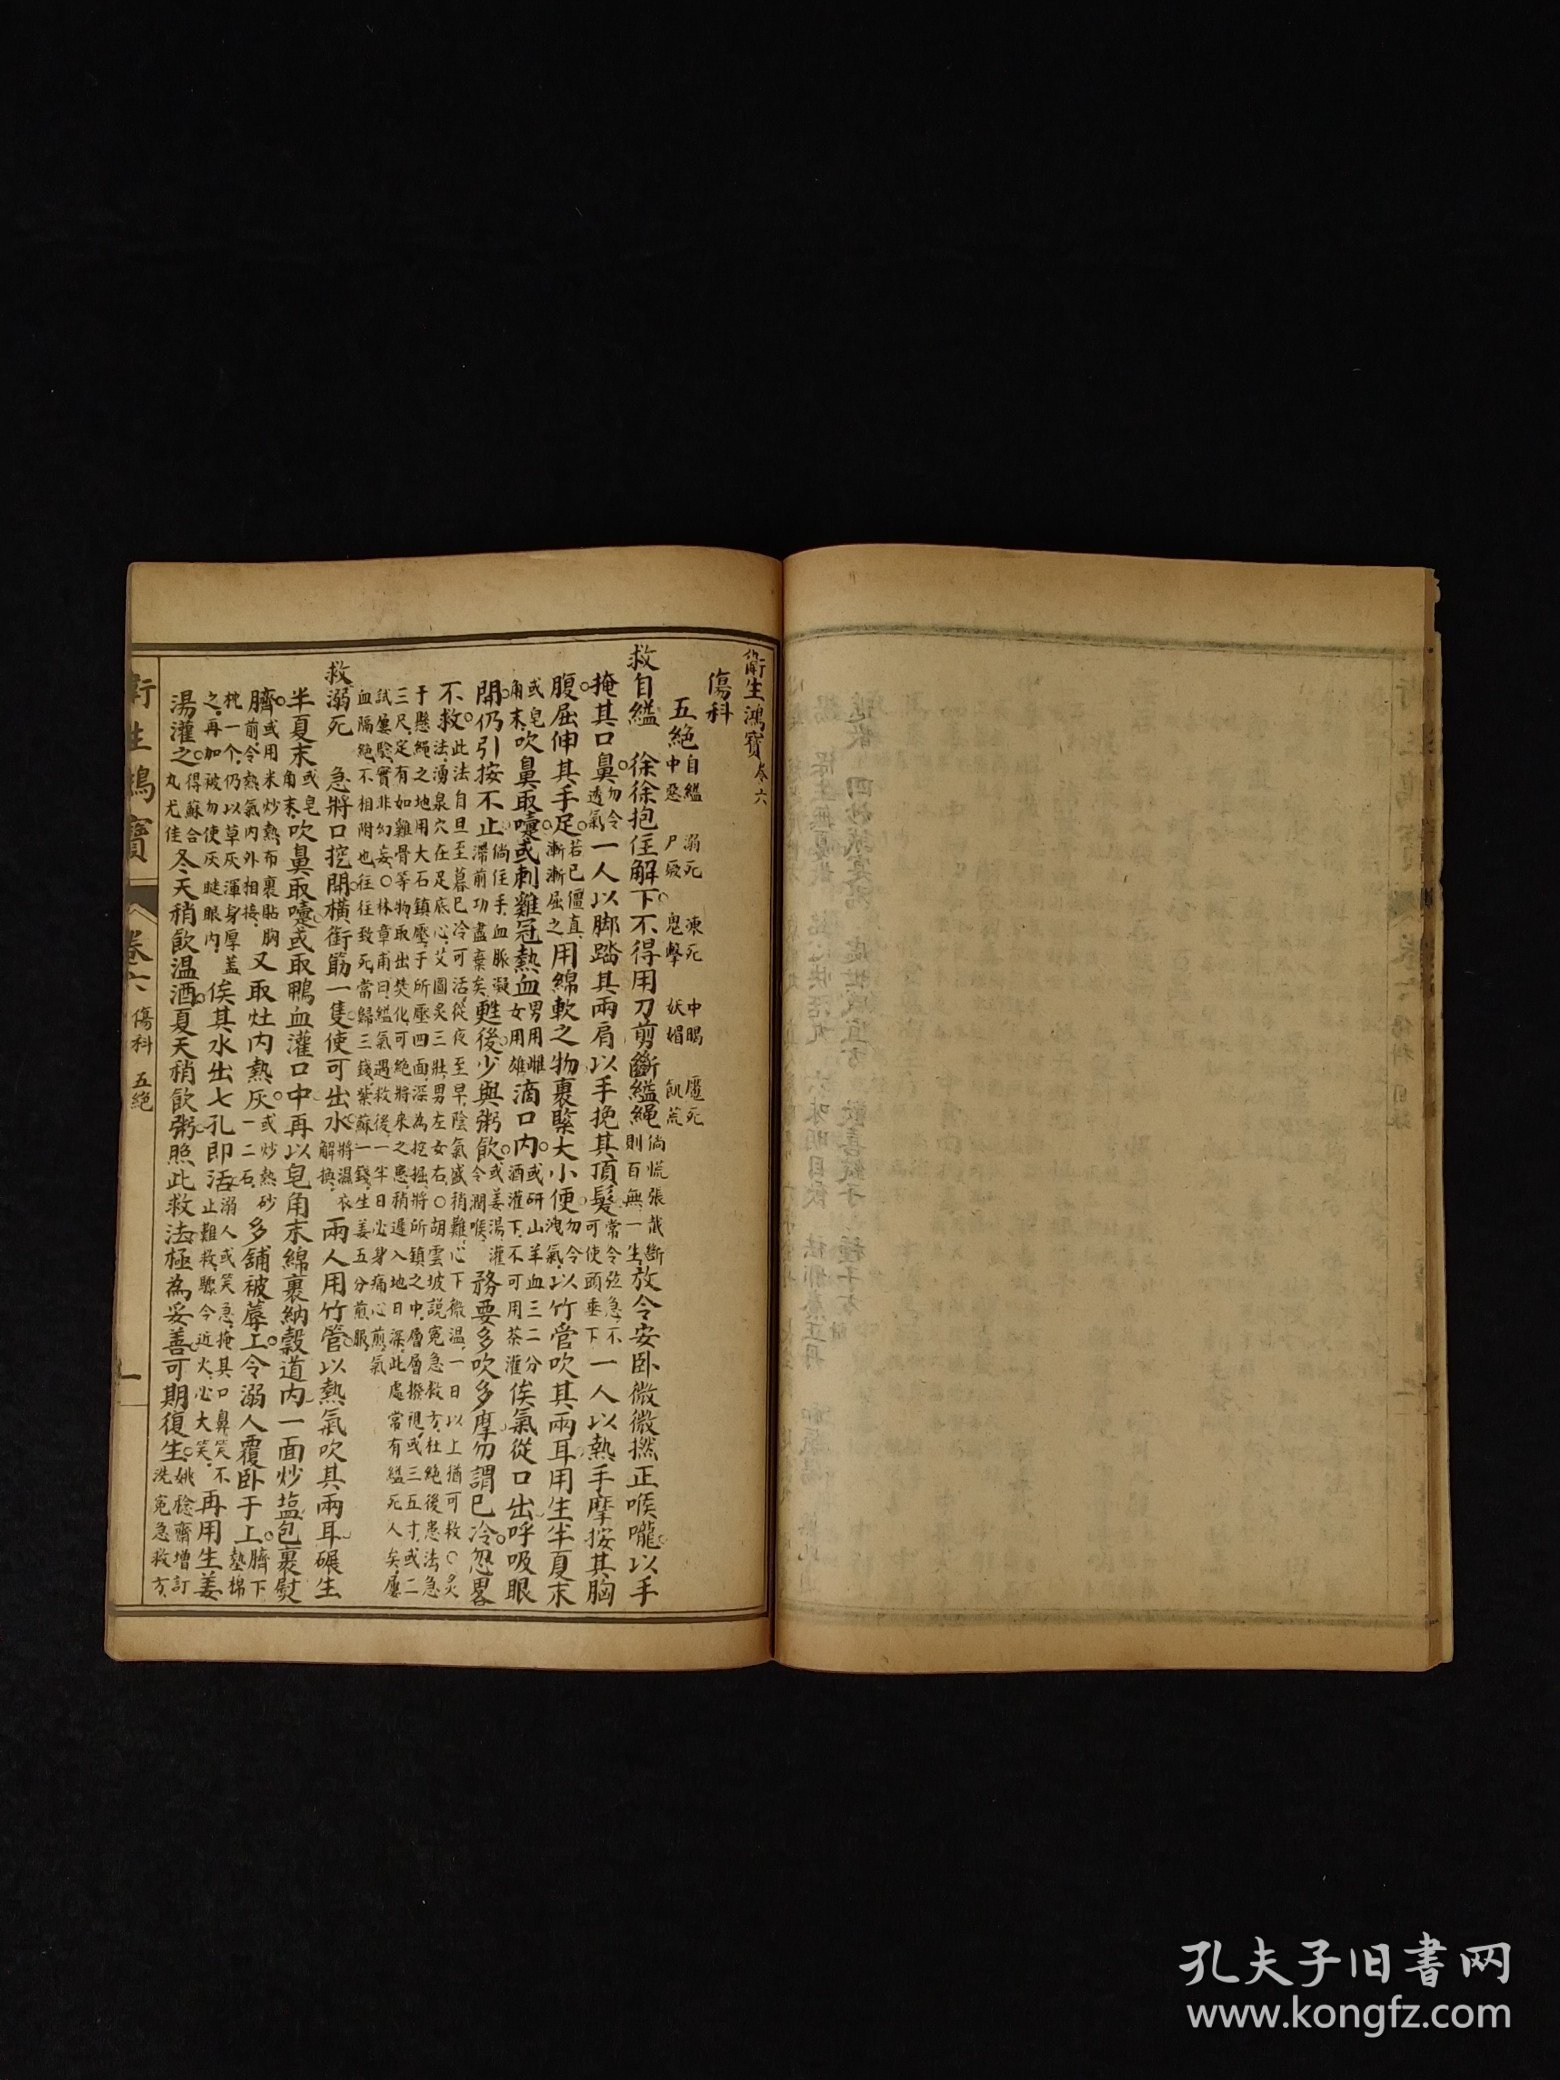 衛生鴻寶卷六
傷科
五絕 自縊 溺死 凍死 中暍 魘死
中惡 尸厥 鬼擊 妖媚 飢荒
救自縊 徐徐抱住解下。不得用刀剪斷繩 倘慌張截斷 則百無一生 放令安臥微微撚正喉嚨。以手
掩其口鼻。勿令透氣 一人以脚踏其兩肩以手挽其頂髮 常令弦急不 可使頭垂下 一人以熱手摩按其胸
腹。屈伸其手足。若已僵直 漸漸屈之 用綿軟之物裹緊大小便。勿令洩氣 以竹管吹其兩耳用生半夏末
或皂角末 吹鼻取嚏。或刺雞冠熱血 男用雌 女用雄 滴口內。或研山羊血三二分 酒灌下不可用茶灌 俟氣從口出呼吸眼
開仍引按不止。倘住手血脈凝 滯前功盡棄矣 甦後少與粥飲。或姜湯灌 令潤喉 務要多吹多摩勿謂已冷忽畧
不救。此法自旦至暮已冷可活從夜至旦陰氣盛稍難心下微溫一日以上猶可救○灸
法湧泉穴在足底心艾圓灸三壯男左女右○胡雲坡說寃急救方杜絕後患法急
于懸繩之地用大石鎮壓于所壓四面深為挖掘將所鎮之中層層撥視或三五寸或二
三尺定有如雞骨等物取出焚化可絕將來之患稍遲入地日深此處常有縊死人矣屢
試屢驗實非幻妄○林章甫曰縊氣過救後一半日必身痛心煎氣
血隔絕不相附也往往致死當歸三錢紫蘇一錢生姜五分煎服
救溺死 急將口挖開橫銜筯一隻使可出水 將濕衣 解換 兩人用竹管以熱氣吹其兩耳碾生
半夏末 或皂 角末 吹鼻取嚏。或取鴨血灌口中再以皂角末綿裹納穀道內一面炒塩包裹熨
臍。或用米炒熱布裹貼胸 前令熱氣內外相接 又取灶內熱灰 或炒熱砂 一二石 多舖被蓐上令溺人覆臥于上。臍下 墊棉
枕一个仍以草灰渾身厚蓋 之再加被勿使灰瞇眼內 俟其水出七孔即活 溺人或笑急掩其口鼻笑不 止難救驟令近火必大笑 再用生姜
湯灌之。得蘇合 丸尤佳 冬天稍飲温酒。夏天稍飲粥照此救法極為妥善可期復生。姚稔齋增訂 洗寃急救方
衛生鴻寶 卷六 傷科 五絕 一
孔夫子旧书网
www.kongfz.com